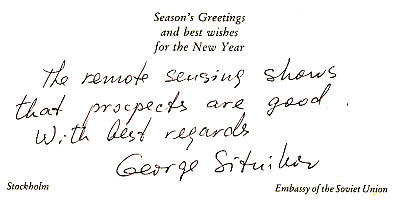 Season's Greetings
and best wishes
for the New Year
The remote sensing shows
that prospects are good.
With best regards
George Sitnikov
Stockholm
Embassy of the Soviet Union